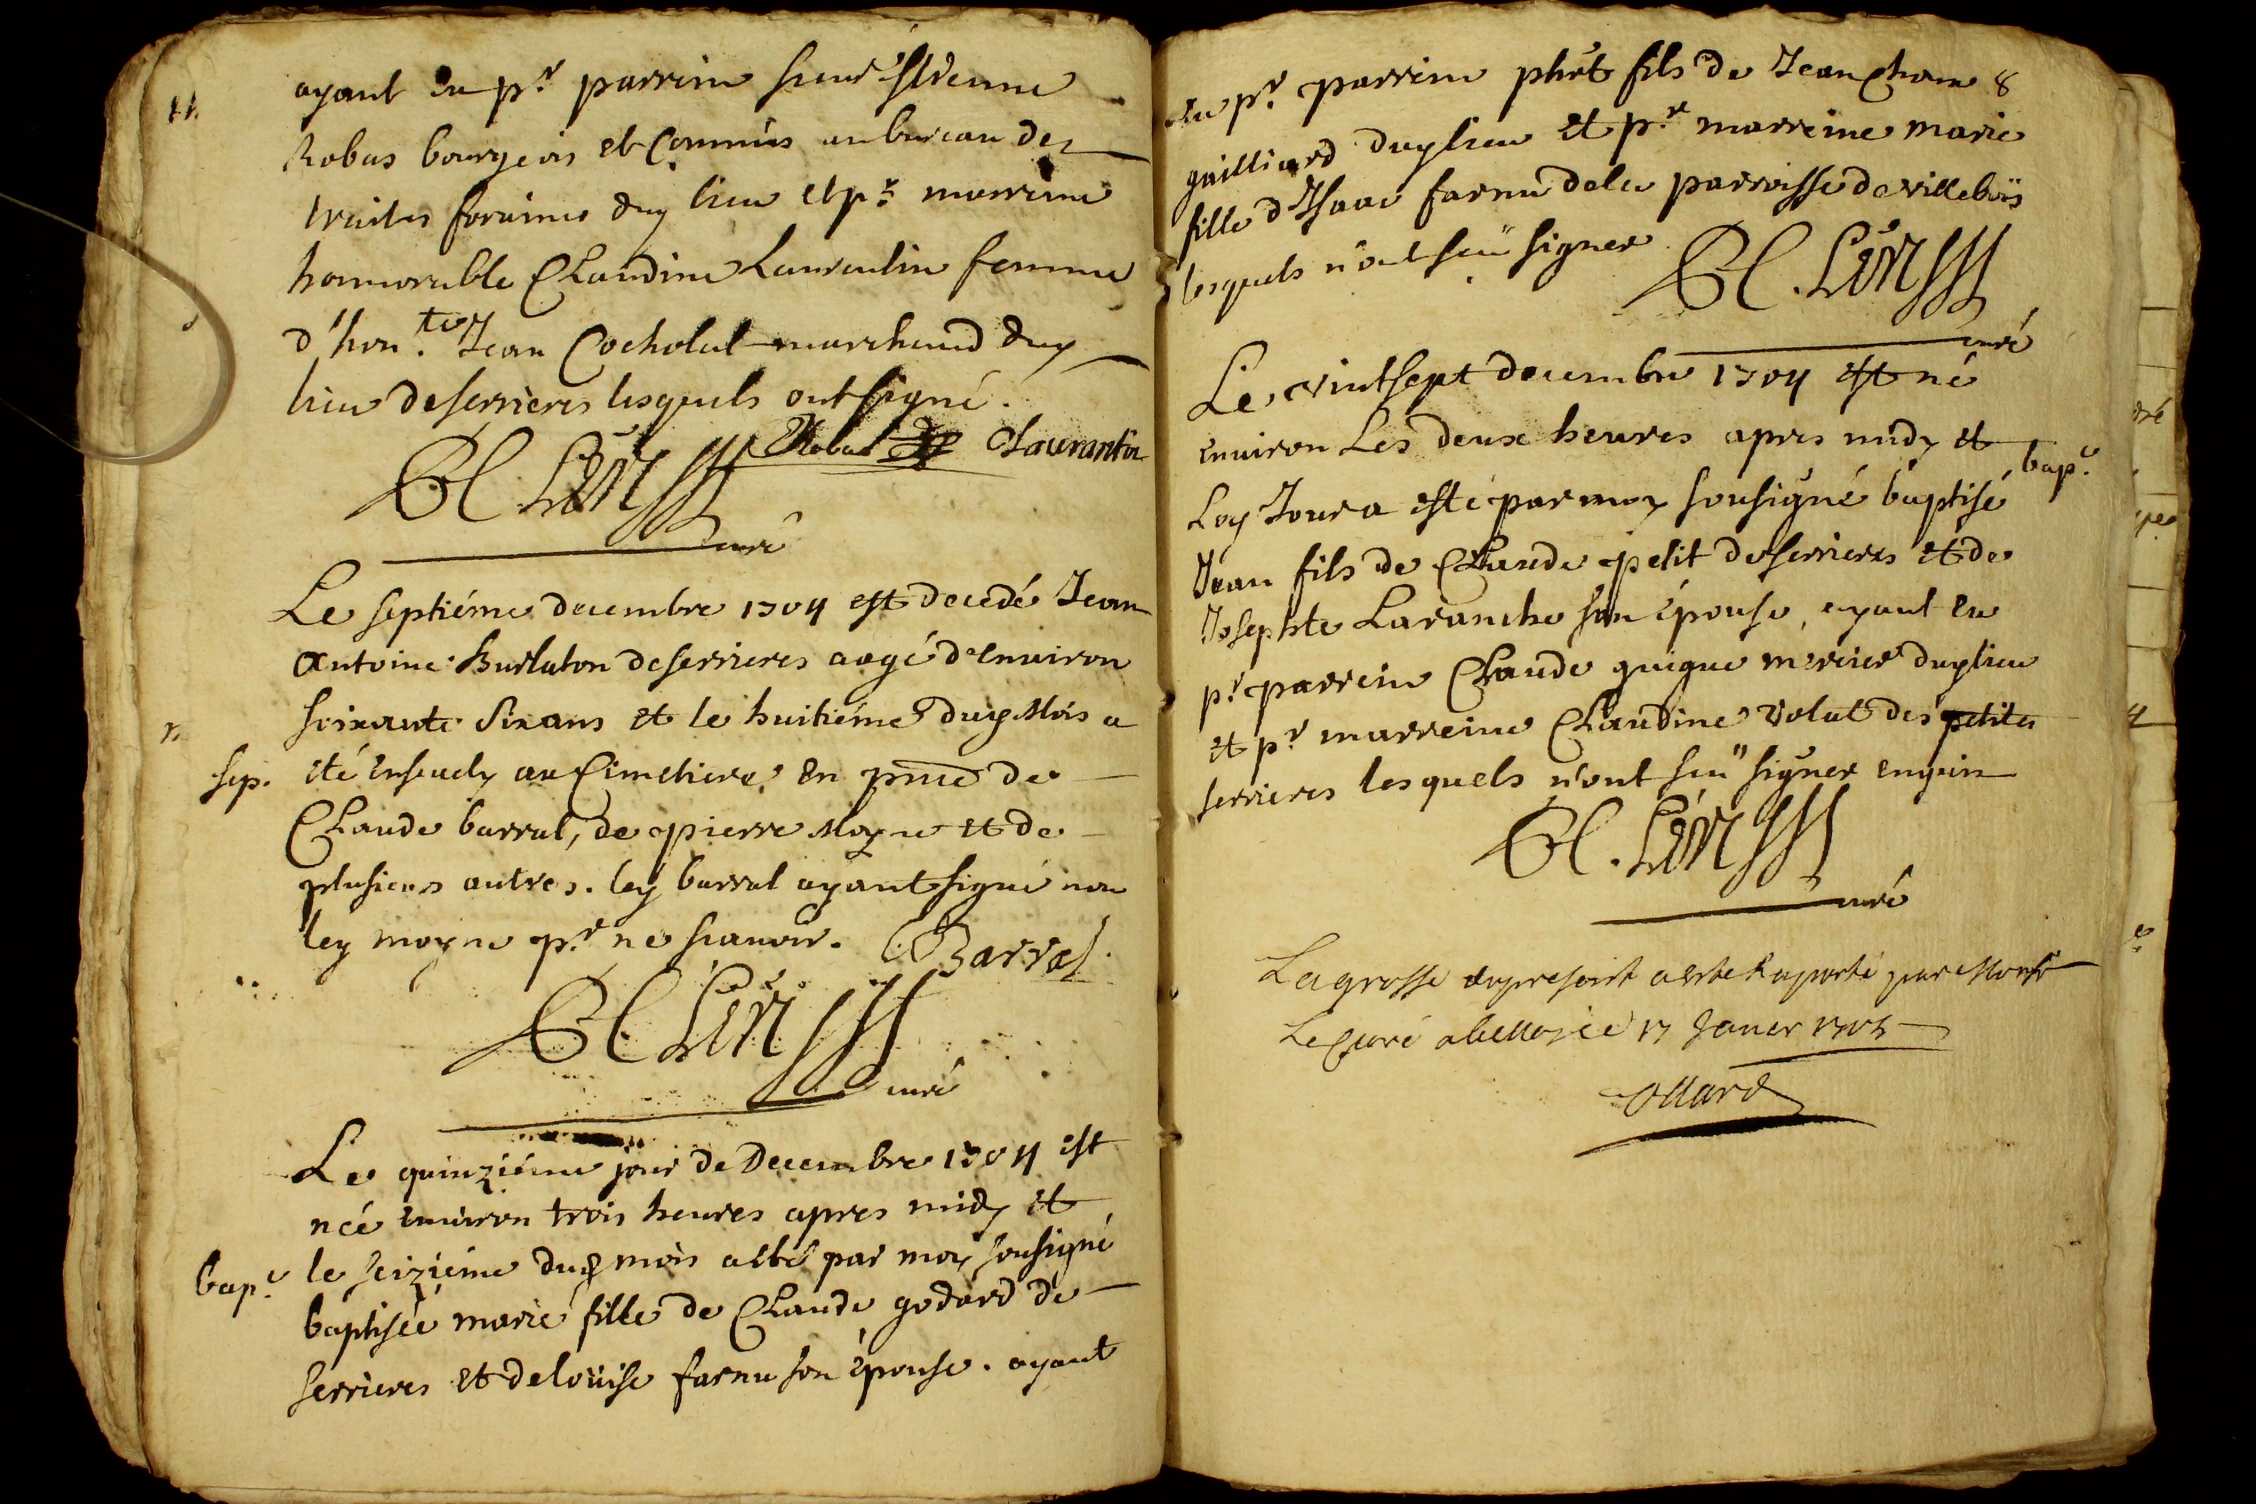 ayant eu pr parrin sieur Estienne
Robas bourgeois et Commis au bureau des
traites foraines duy lieu et pr marreine
honnorable Claudine Laurentin femme
d'hon.te Jean Cocholat marchand duy
lieu de serrieres lesquels ont signé.
Robas C Laurantin
curé
Le septiéme decembre 1704 est decedé Jean
Antoine Burlaton de serrieres aagé d'environ
soixante six ans et le huitiéme duy Mois a
sep. eté enseuely au Cimetiere en pnce de
Claude barral, de pierre Moyne et de
plusieurs autres. ley barral ayant signé non
ley moyne pr ne scauoir. C Barral
curé
Le quinziéme jour de Decembre 1704 est
néé enuiron trois heures apres midy et
bap.e le seiziéme duy mois a été par moy sousigné
baptisée marie fille de Claude godard de
serrieres et de loüise farnu son épouse. ayant
eu pr parrin phet fils de Jean 8
gailliard duy lieu et pr marreine marie
fille d'Isaac farnu de la parroisse de villeboïs
lesquels n'ont sçeü signer
curé
Le vint sept decembre 1704 est né
enuiron Les deux heures apres midy et
bap.e
Ley Jour a esté par moy sousigné baptisé
Jean fils de Claude petit de serrieres et de
Josephte Laranche son épouse, ayant eu
pr parrein Claude guigue mercier duy lieu
et pr marreine Claudine Volut des petites
serrieres lesquels n'ont sceü signer enquis
curé
La grosse du present a este Raporté par Monsr
Le Curé a belley ce 17 Januer 1705